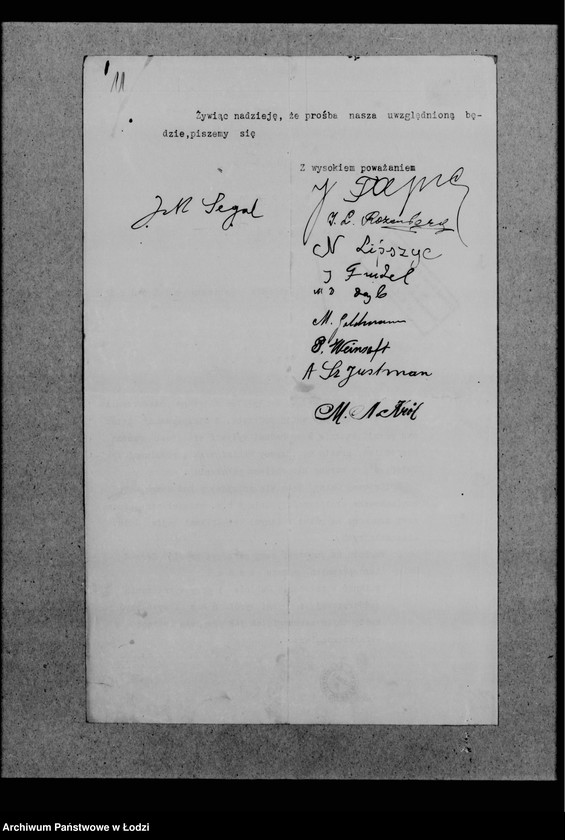 11
Żywiąc nadzieję, że prośba nasza uwzględnioną bę-
dzie,piszemy się
Z wysokiem poważaniem
J M Segal
J. L. Rozenberg
N Lipszyc
J Frudel
M. Goldmann
P. Weinsaft
A Sz Justman
M. A Król
Archiwum Państwowe w Łodzi